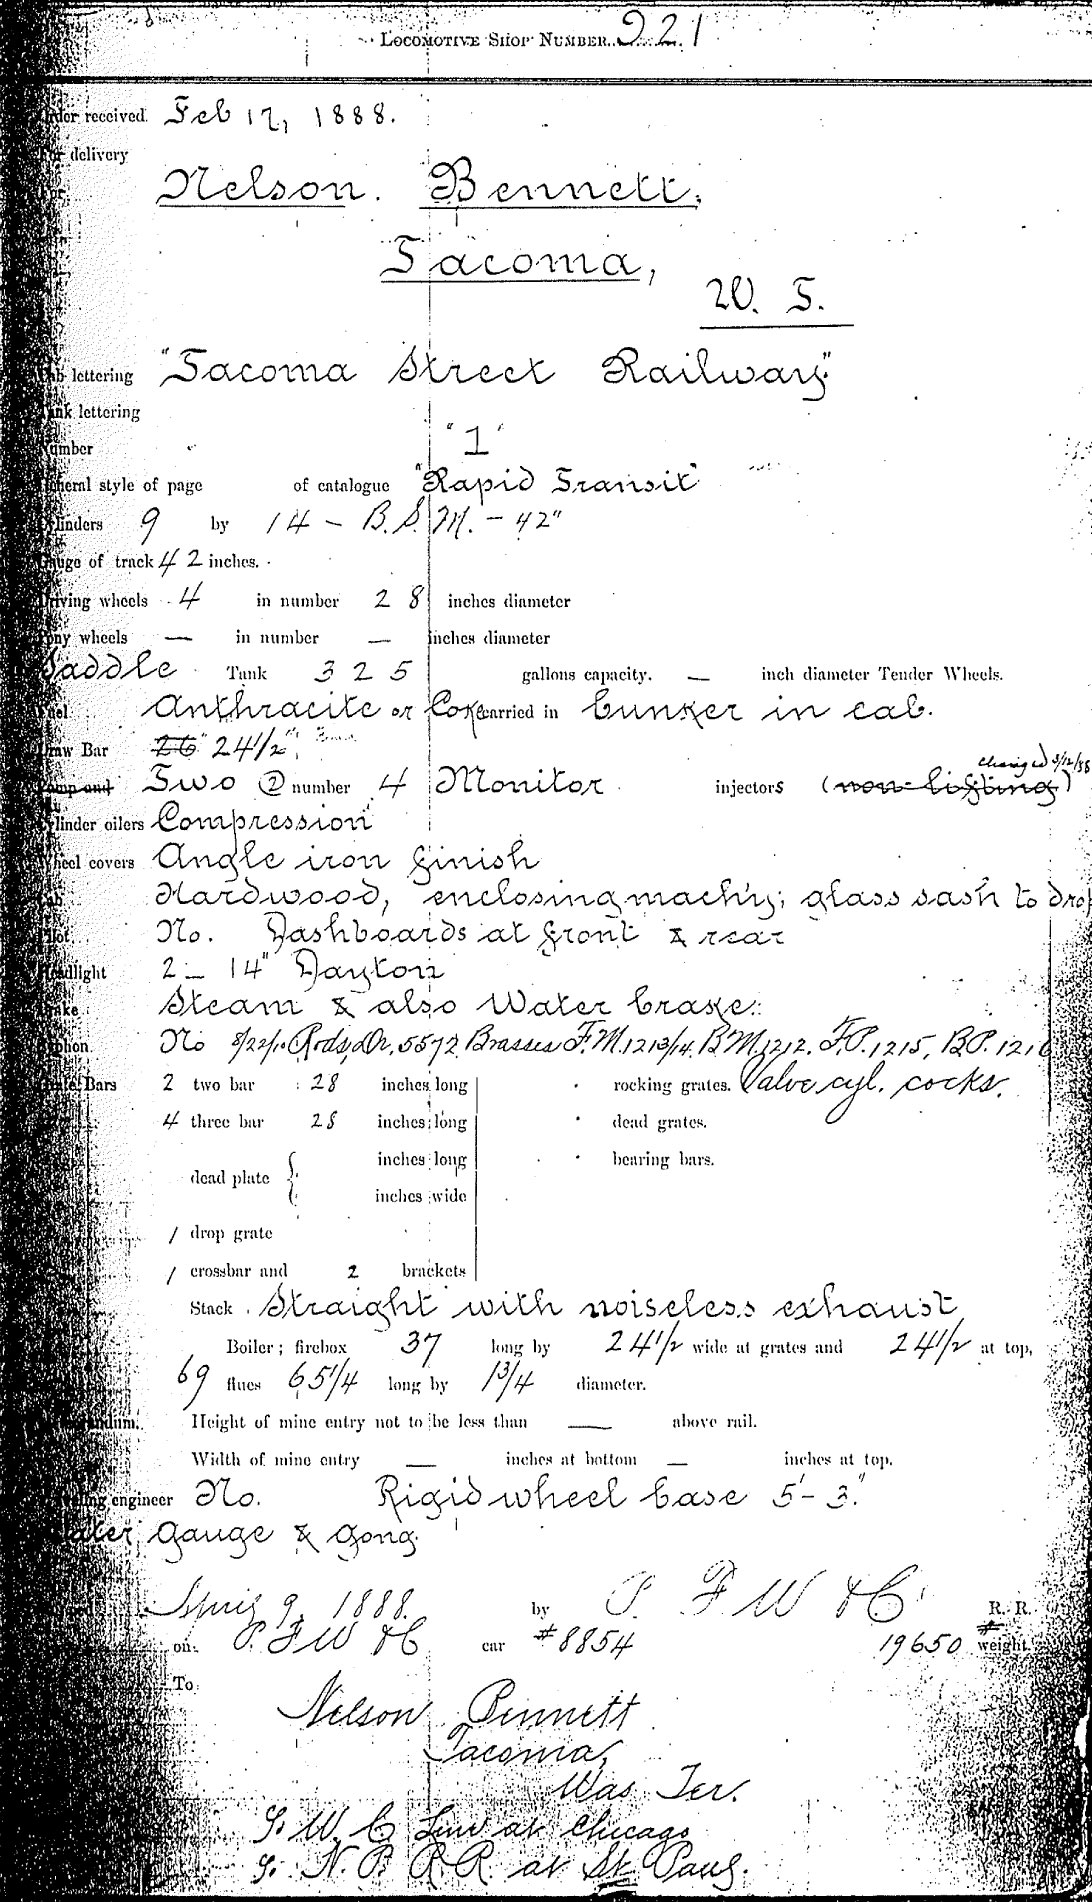 LOCOMOTIVE SHOP NUMBER 921
Order received. Feb 17, 1888.
For delivery
For Nelson. Bennett,
Tacoma,
W. T.
Cab lettering "Tacoma Street Railway"
Tank lettering
Number "1"
General style of page of catalogue "Rapid Transit"
Cylinders 9 by 14 - B.S.M. - 42"
Gauge of track 42 inches.
Driving wheels 4 in number 28 inches diameter
Pony wheels — in number — inches diameter
Saddle Tank 325 gallons capacity. — inch diameter Tender Wheels.
Fuel Anthracite or Coke carried in bunker in cab.
Draw Bar 26" 24½"
changed 3/12/88
Pump and Two ② number 4 Monitor injectors (non-lifting)
Cylinder oilers Compression
Wheel covers Angle iron finish
Cab Hardwood, enclosing mach'y; glass sash to drop
Pilot No. Dashboards at front & rear
Headlight 2 - 14" Dayton
Brake Steam & also Water brake.
Syphon. No 8/22/10 Rods, Or. 5572, Brasses F.M. 1213/14, B.M. 1212, F.P. 1215, B.P. 1216
Grate Bars 2 two bar 28 inches long rocking grates. Valve cyl. cocks.
4 three bar 28 inches long dead grates.
dead plate { inches long bearing bars.
inches wide
1 drop grate
1 crossbar and 2 brackets
Stack Straight with noiseless exhaust
Boiler; firebox 37 long by 24½ wide at grates and 24½ at top,
69 flues 65¼ long by 1¾ diameter.
Memorandum. Height of mine entry not to be less than — above rail.
Width of mine entry — inches at bottom — inches at top.
Traveling engineer No. Rigid wheel base 5'-3".
Water gauge & gong
April 9, 1888. by P. F W & C R. R.
on P. F W & C car #8854 19650 # weight
To
Nelson Bennett
Tacoma,
Was Ter.
W. C Line at Chicago
N. P. R R. at St Paul.